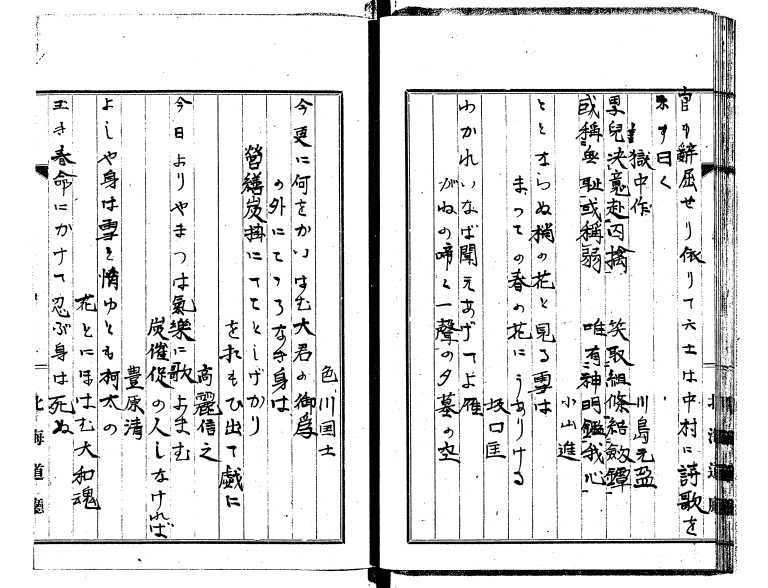 官も辭屈せり依りて六士は中村に詩歌を
示す曰く
獄中作
川島元盈
男兒決意赴囚擒 笑取組條結劔鐔
或稱無恥或稱弱 唯有神明鑑我心
小山進
ととまらぬ梢の花と見る雪は
まつての春の花にうありける
坂口匡
わかれいなば聞えあげてよ雁
がねの啼く一聲の夕墓の空
北海道廳
色川国士
今更に何をかいはむ大君の御為
の外にこころなき身は
營繕炭掛にてとしげかり
を れもひ出て戯に
高麗信之
今日よりやまつは氣樂に歌よまむ
炭催促の人しなければ
豊原清
よしや身は雪と消ゆとも柯太の
花とにほはむ大和魂
玉き春命にかけて忍ぶ身は死ぬ
北海道廳